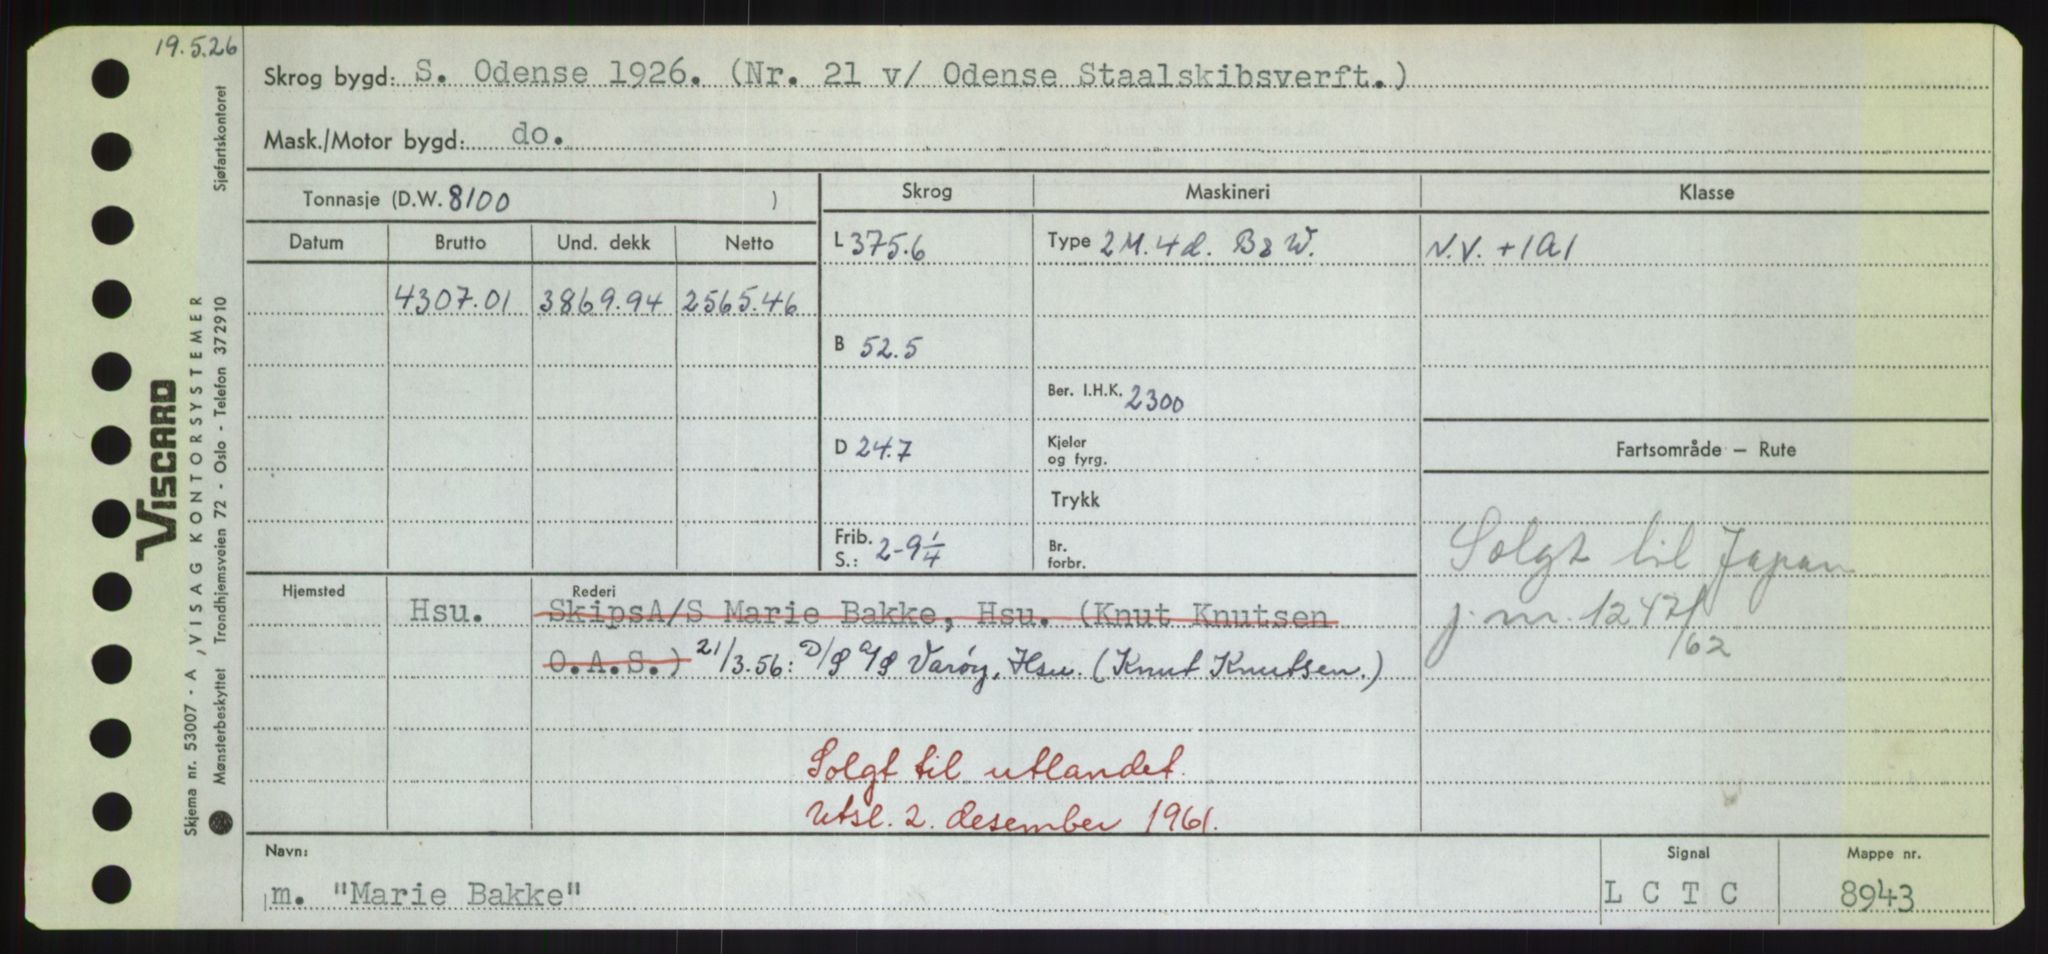 19.5.26
Skrog bygd: S. Odense 1926. (Nr. 21 v/ Odense Staalskibsverft.)
Mask./Motor bygd: do.
Tonnasje (D.W. 8100 )
Skrog
Maskineri
Klasse
Datum
Brutto
Und. dekk
Netto
L 375.6
Type 2 M. 4 d. B & W.
N.V. + 1A1
4307.01
3869.94
2565.46
B 52.5
Ber. I.H.K. 2300
D 24.7
Kjeler
og fyrg.
Fartsområde – Rute
Trykk
Frib.
S.: 2-9 1/4
Br.
forbr.
Solgt til Japan
j. nr. 1247/
/62
Hjemsted
Rederi
Hsu.
SkipsA/S Marie Bakke, Hsu. (Knut Knutsen
O.A.S.) 21/3.56: D/S A/S Varøy, Hsu. (Knut Knutsen.)
Solgt til utlandet.
Utsl. 2. desember 1961.
Navn:
Signal
Mappe nr.
m. "Marie Bakke"
L C T C
8943
VISCARD
Skjema nr. 53007 - A , VISAG KONTORSYSTEMER
Mønsterbeskyttet Trondhjemsveien 72 - Oslo - Telefon 372910 Sjøfartskontoret